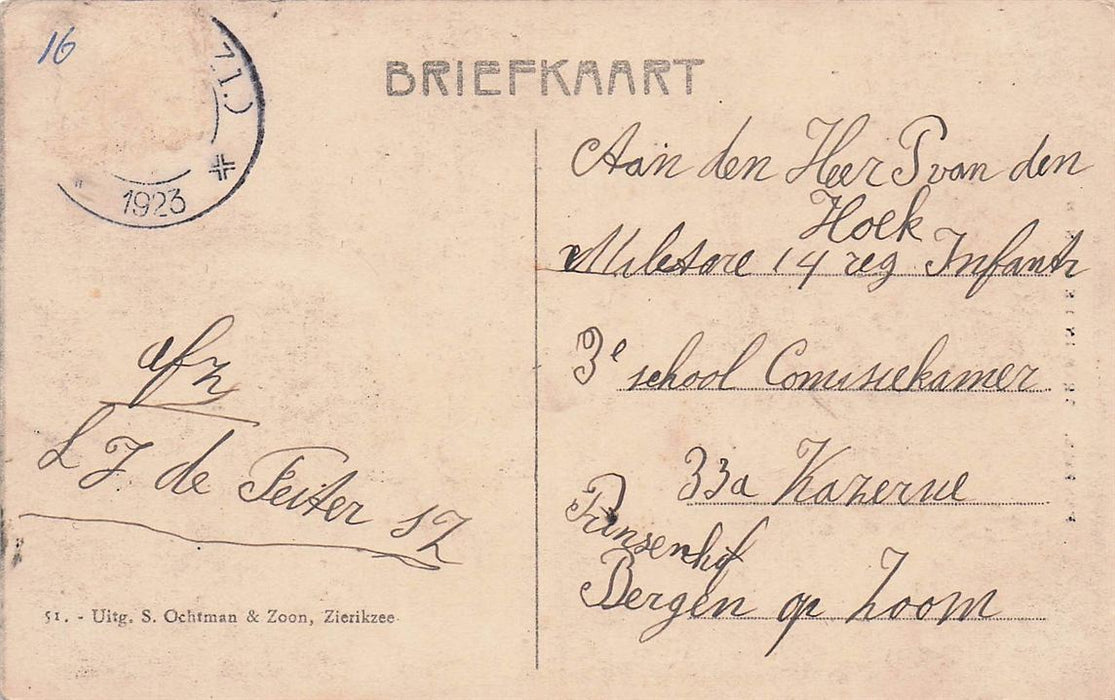 16
1923
BRIEFKAART
Aan den Heer P van den
Hoek
Miletare 14 reg Infantr
3e school Comisiekamer
33a Kazerne
Prinsenhof
Bergen op Zoom
afz
L J de Feiter SZ
51. - Uitg. S. Ochtman & Zoon, Zierikzee